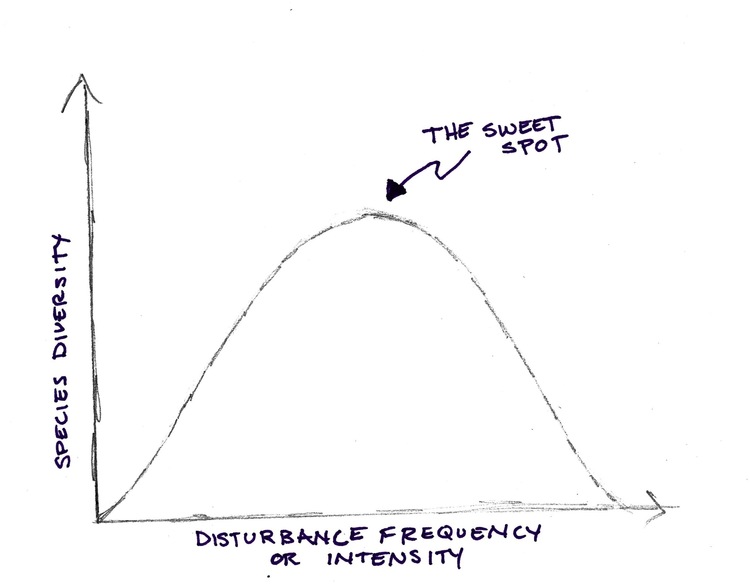 THE SWEET
SPOT
SPECIES DIVERSITY
DISTURBANCE FREQUENCY
OR INTENSITY